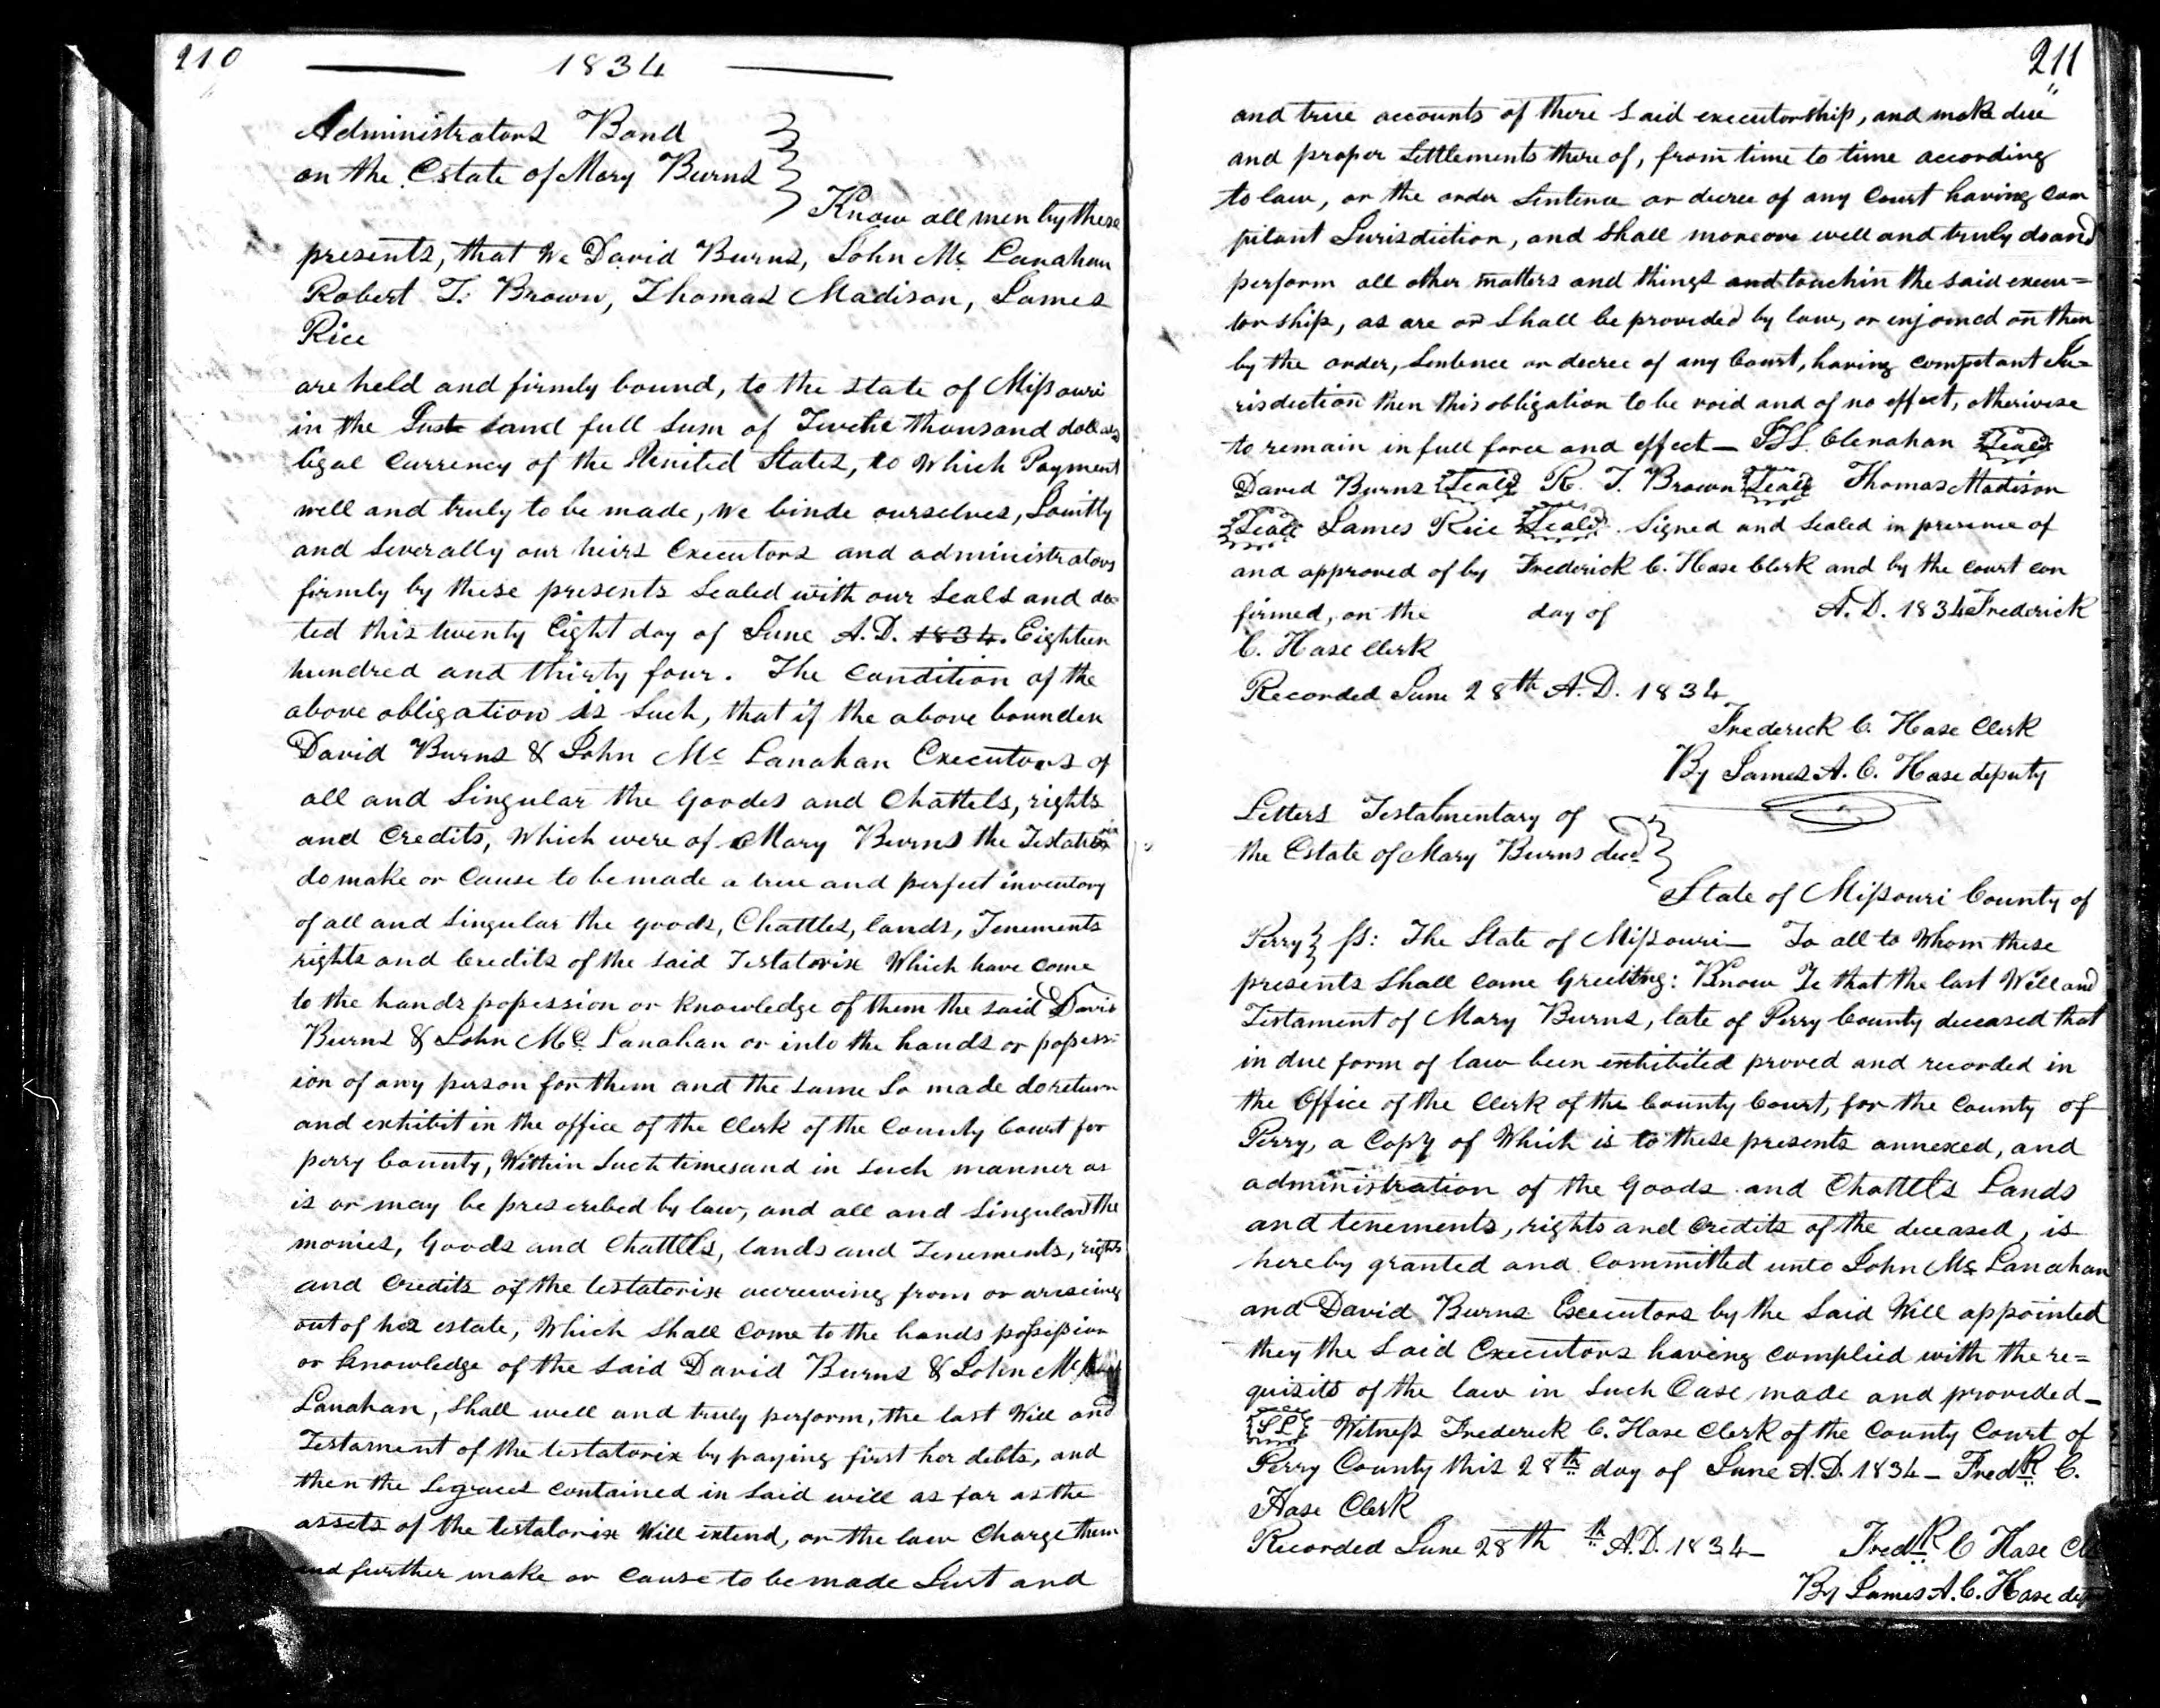 210
1834
Administrators Bond
on the Estate of Mary Burns
Know all men by these
presents, that We David Burns, John Mc Lanahan
Robert T. Brown, Thomas Madison, James
Rice
are held and firmly bound, to the state of Missouri
in the Just and full Sum of Twelve thousand dollars
legal Currency of the United States, to Which Payment
well and truly to be made, we binde ourselves, Jointly
and Severally our heirs Executors and administrators
firmly by these presents Sealed with our Seals and da
ted this twenty Eight day of June A.D. 1834. Eighteen
hundred and thirty four. The Condition of the
above obligation is Such, that if the above bounden
David Burns & John Mc Lanahan Executors of
all and Singular the goodes and Chattels, rights
and Credits, Which were of Mary Burns the Testatrix
do make or Cause to be made a true and perfect inventory
of all and Singular the goods, Chattles, lands, Tenements
rights and Credits of the said Testatorix Which have Come
to the hands possession or knowledge of them the said David
Burns & John Mc Lanahan or into the hands or possess=
ion of any person for them and the same So made do return
and exhibit in the office of the Clerk of the County Court for
perry County, Within Such times and in such manner as
is or may be prescribed by law, and all and Singular the
monies, Goods and Chattles, lands and Tenements, rights
and Credits of the testatorix accrueing from or ariseing
out of her estate, Which Shall Come to the hands possission
or knowledge of the said David Burns & John Mc
Lanahan, Shall well and truly perform, the last Will and
Testament of the testatorix by paying first her debts, and
then the Legaces contained in Said will as far as the
assets of the testatorix Will extend, or the law Charge them
and further make or Cause to be made Just and
211
and true accounts of there Said executorship, and make due
and proper Settlements there of, from time to time according
to law, or the order Sentence or decree of any Court having Com
pitant Jurisdiction, and Shall moreove well and truly do and
perform all other matters and things and touchin the said execu=
tor ship, as are or Shall be provided by law, or enjoined on them
by the order, Sentence or decree of any Court, having competant Ju=
risdiction then this obligation to be void and of no effect, otherwise
to remain in full force and effect — Clenahan Seal
David Burns Seal R. T. Brown Seal Thomas Madison
Seal James Rice Seal. Signed and Sealed in presence of
and approved of by Frederick C. Hase Clerk and by the Court con
firmed, on the day of A.D. 1834 Frederick
C. Hase Clerk
Recorded June 28th A.D. 1834
Frederick C. Hase Clerk
By James A. C. Hase deputy
Letters Testatmentary of
the Estate of Mary Burns decd
State of Missouri County of
Perry ss: The State of Missouri — To all to Whom these
presents Shall come Greeting: Know Ye that the last Will and
Testament of Mary Burns, late of Perry County deceased that
in due form of law been exhibited proved and recorded in
the Office of the Clerk of the County Court, for the County of
Perry, a Copy of Which is to these presents annexed, and
administration of the Goods and Chattels Lands
and tenements, rights and Credits of the deceased, is
hereby granted and Committed unto John Mc Lanahan
and David Burns Executors by the Said Will appointed
they the Said Executors having complied with the re=
quisits of the law in Such Case made and provided —
Witness Frederick C. Hase Clerk of the County Court of
Perry County this 28th day of June A.D. 1834 — Fredk C.
Hase Clerk
Recorded June 28th th A.D. 1834 — Fredk C Hase
By James A. C. Hase